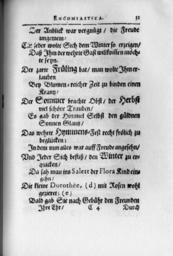 ENCOMIASTICA. 31
Der Anblick war vergnügt / die Freude
ungemein;
Ein jeder wolte Sich dem Winter so erzeigen/
Daß Ihm der wehrte Gast willkommen möchte seyn.
Der zarte Frühling bat / man wolte Ihm erlauben
Bey Blumen-reicher Zeit zu binden einen
Krantz/
Der Sommer brachte Obst / der Herbst
viel schöne Trauben/
Es gab der Himmel Selbst den güldnen
Sonnen Glantz/
Das wehrte Hymmens-Fest recht frölich zu
beglücken;
In dem nun alles war auff Freude angesehn/
Und Jeder Sich befliß / den Winter zu
Da sah man ins Salett der Flora Kind ein
gehn/
Die kleine Dorothée, (d) mit Rosen wohl
gezieret: (e)
Bald gab Sie nach Gebühr den Freunden
Ihre Ehr /
C 4 Durch